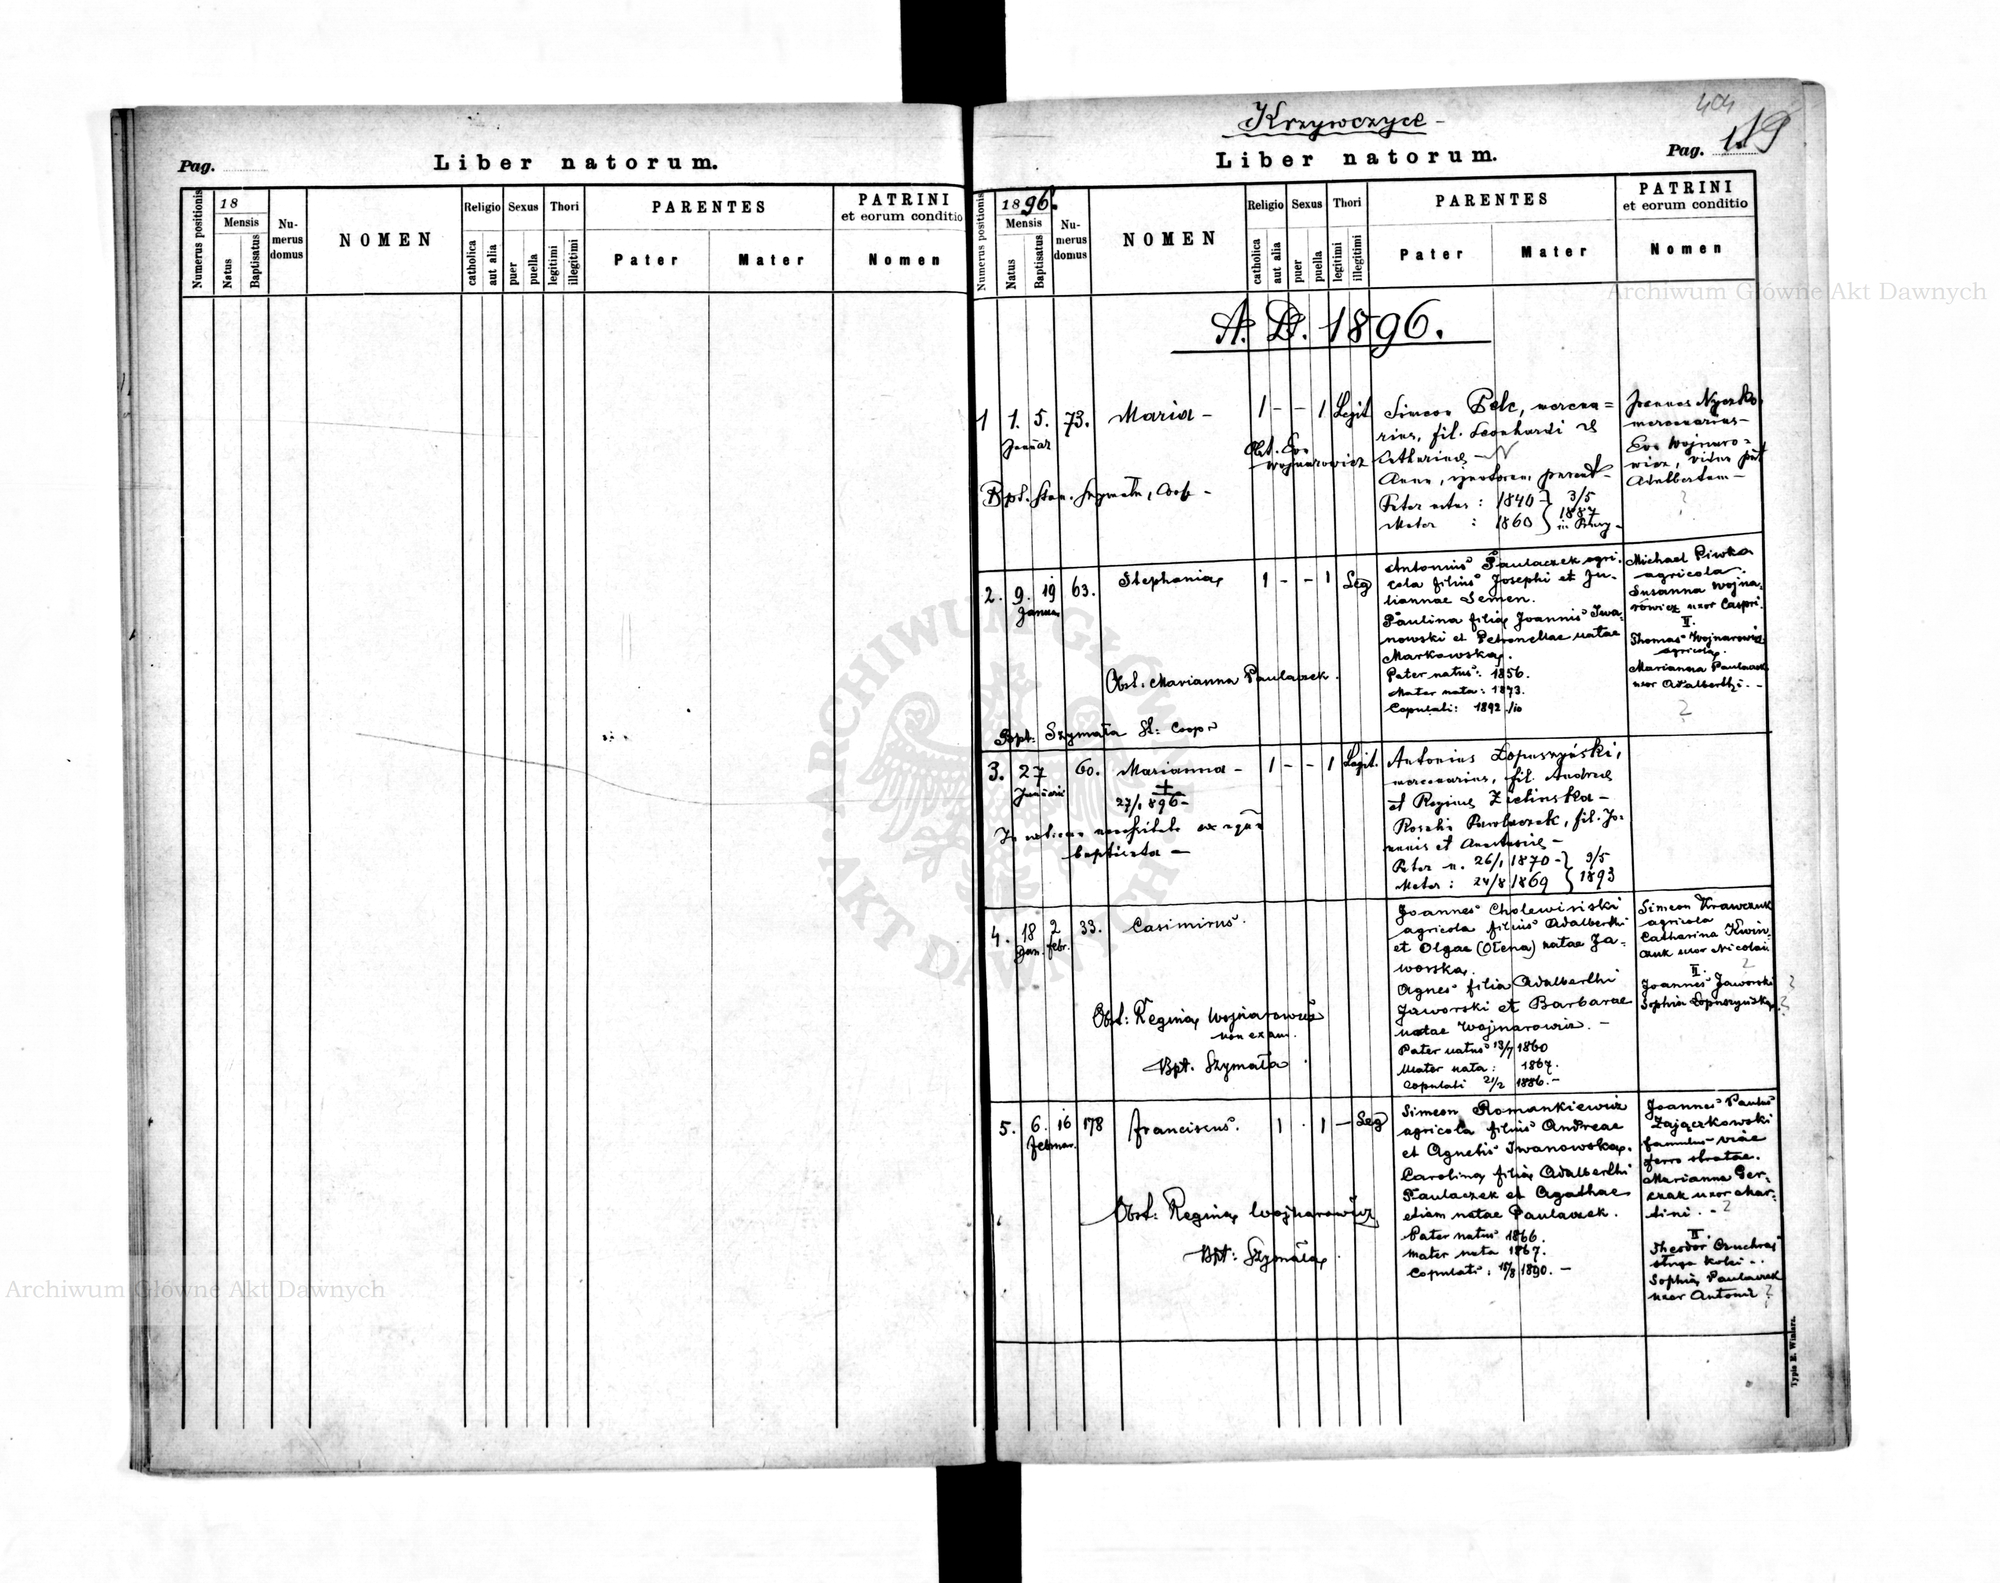 Pag.
Liber natorum.
Numerus positionis
18
Mensis
Natus
Baptisatus
Nu-
merus
domus
NOMEN
Religio
catholica
aut alia
Sexus
puer
puella
Thori
legitimi
illegitimi
PARENTES
Pater
Mater
PATRINI
et eorum conditio
Nomen
Krzywczyce -
404
Liber natorum.
Pag. 119
Numerus positionis
1896.
Mensis
Natus
Baptisatus
Nu-
merus
domus
NOMEN
Religio
catholica
aut alia
Sexus
puer
puella
Thori
legitimi
illegitimi
PARENTES
Pater
Mater
PATRINI
et eorum conditio
Nomen
A. D. 1896.
1 1. 5. 73. Maria - 1 - - 1 Legit
Januar
Obst. Eva
Wojnarowicz
Simeon Pelc, mercena=
rius, fil. Leonhardi et
Catharinae -
Anna, ignotorum parent-
Pater natus : 1840 } 3/5
Mater : 1860 } 1887
Joannes Nyczko,
mercenarius -
Eva Wojnaro=
wicz, vidua post
Adalbertum -
?
Bpt. Stan. Szymała, Coop -
2. 9. 19 63. Stephania 1 - - 1 Leg
Januar
Antonius Paulaczek agri-
cola filius Josephi et Ju-
liannae Semen.
Paulina filia Joannis Iwa-
nowski et Petronellae natae
Markowska.
Pater natus : 1856.
Mater nata : 1873.
Copulati : 1892 /10
Michael Piwka
agricola.
Susanna Wojna-
rowicz uxor Caspri.
II.
Thomas Wojnarowicz
agricola.
Marianna Paulaczek
uxor Adalberthi. -
?
Obst. Marianna Paulaczek.
Bpt: Szymała St: Coop
3. 27 60. Marianna - 1 - - 1 Legit.
Januarii
+
27/1 896 -
baptizata -
Antonius Łopuszyński,
mercenarius, fil. Andreae
et Reginae Zielinska -
Rosalia Pawlaczek, fil. Jo-
annis et Anastasiae -
Pater n. 26/1 1870 - } 9/5
Mater : 24/8 1869 } 1893
4. 18 2 33. Casimirus.
Jan. febr.
Joannes Cholewiński
agricola filius Adalberthi
et Olgae (Ołena) natae Ja-
worska.
Agnes filia Adalberthi
Jaworski et Barbarae
natae Wojnarowicz. -
Pater natus 13/7 1860
Mater nata : 1867.
Copulati 21/2 1886. -
Simeon Krawczuk
agricola
Catharina Kwin-
czuk uxor Nicolai
?
II.
Joannes Jaworski ?
Sophia Łopuszyńska ?
Obst: Regina Wojnarowicz
non exam.
Bpt. Szymała
5. 6. 16 178 Franciscus. 1 . 1 - Leg
Februar.
Simeon Romankiewicz
agricola filius Andreae
et Agnetis Iwanowska.
Carolina filia Adalberthi
Paulaczek et Agathae
etiam natae Paulaczek.
Pater natus 1866.
Mater nata 1867.
Copulati : 18/8 1890. -
Joannes Paulus
Zajączkowski
famulus viae
ferro stratae.
Marianna Ger-
czak uxor Mar-
tini. - ?
II.
Theodor
sługa kolei -.
Sophia Paulaczek
uxor Antonii ?
Obst: Regina Wojnarowicz
Bpt: Szymała
Typis E. Winiarz.
Archiwum Główne Akt Dawnych
Archiwum Główne Akt Dawnych
ARCHIWUM GŁÓWNE AKT DAWNYCH